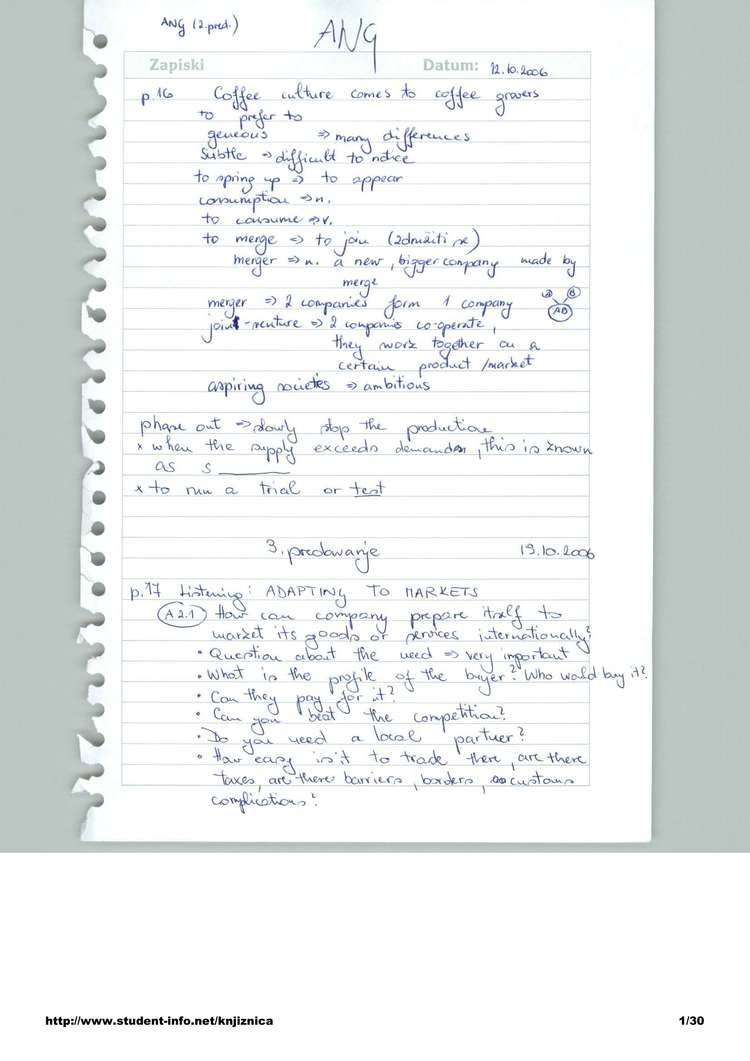 ANG (2.pred.)
ANG
Zapiski
Datum: 12.10.2006
p.16 Coffee culture comes to coffee growers
to prefer to
geneous => many differences
subtle => difficult to notice
to spring up => to appear
consumption => n.
to consume => v.
to merge => to join (združiti se)
merger => n. a new, bigger company made by
merge
merger => 2 companies form 1 company
A B
AB
joint-venture => 2 companies co-operate,
they work together on a
certain product /market
aspiring societes => ambitious
phase out => slowly stop the production
x when the supply exceeds demand, this is known
as s________
x to run a trial or test
3. predavanje 19.10.2006
p.17 Listening: ADAPTING TO MARKETS
A 2.1 How can company prepare itself to
market its goods or services internationally?
• Question about the need => very important
• What is the profile of the buyer? Who would buy it?
• Can they pay for it?
• Can you beat the competition?
• Do you need a local partner?
• How easy is it to trade there, are there
taxes, are there barriers, borders, customs
complications?
http://www.student-info.net/knjiznica
1/30